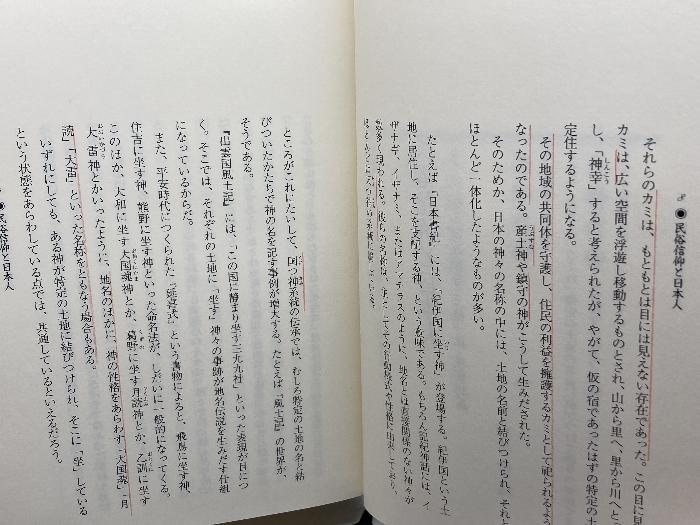 ● 民俗信仰と日本人
それらのカミは、もともとは目には見えない存在であった。この目に見
カミは、広い空間を浮遊し移動するものとされ、山から里へ、里から川へと
し、「神幸」すると考えられたが、やがて、仮の宿であったはずの特定の土
定住するようになる。
その地域の共同体を守護し、住民の利益を擁護するカミとして祀られるよう
なったのである。産土神や鎮守の神がこうして生みだされた。
そのためか、日本の神々の名称の中には、土地の名前と結びつけられ、それと
ほとんど一体化したようなものが多い。
たとえば『日本書紀』には、「紀伊国に坐す神」が登場する。紀伊国という土
地に居住し、そこを支配する神、という意味である。もちろん記紀神話には、イ
ザナギ、イザナミ、またはアマテラスのように、地名とは直接関係のない神々が
ところがこれにたいして、国つ神系統の伝承では、むしろ特定の土地の名と結
びついたかたちで神の名を記す事例が増大する。たとえば『風土記』の世界が、
そうである。
『出雲国風土記』には、「この国に静まり坐す三九九社」といった表現が目につ
く。そこでは、それぞれの土地に「坐す」神々の事跡が地名伝説を生みだす仕組
になっているからだ。
また、平安時代につくられた『延喜式』という書物によると、飛鳥に坐す神、
住吉に坐す神、熊野に坐す神といった命名法が、しだいに一般的になってくる。
このほか、大和に坐す大国魂神とか、葛野に坐す月読神とか、乙訓に坐す
大雷神とかいったように、地名のほかに、神の性格をあらわす「大国魂」「月
読」「大雷」といった名称をともなう場合もある。
いずれにしても、ある神が特定の土地に結びつけられ、そこに「坐」している
という状態をあらわしている点では、共通しているといえるだろう。
● 民俗信仰と日本人